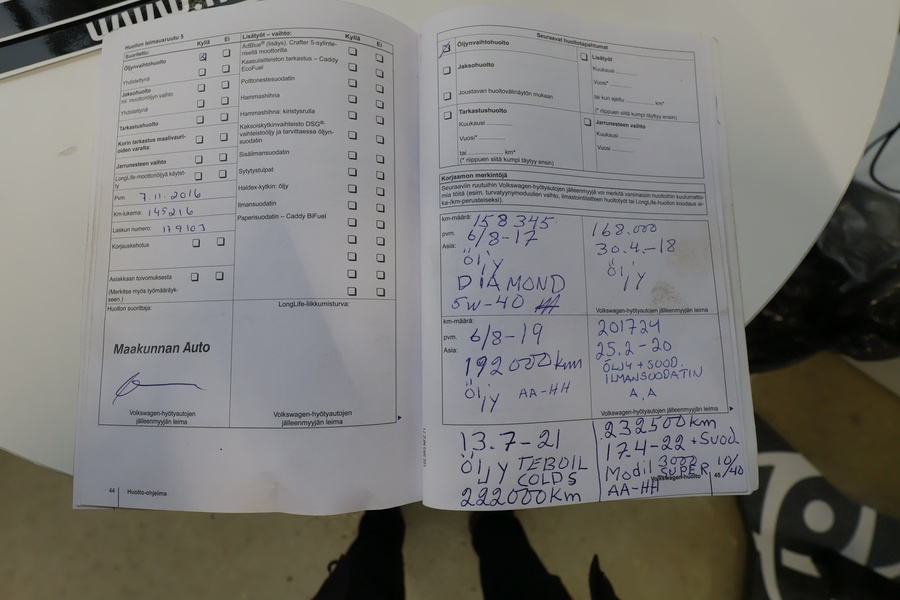 Huollon leimausruutu 5
Suoritettu: Kyllä Ei
Öljynvaihtohuolto
Yhdistettynä
Jaksohuolto
ml. moottoriöljyn vaihto
Yhdistettynä
Tarkastushuolto
Korin tarkastus maalivauri-
oiden varalta:
Jarrunesteen vaihto
LongLife-moottoriöljyä käytet-
ty
Pvm. 7.11.2016
Km-lukema: 145216
Laskun numero: 179103
Korjauskehotus
Asiakkaan toivomuksesta
(Merkitse myös työmääräyk-
seen.)
Huollon suorittaja:
Maakunnan Auto
Volkswagen-hyötyautojen
jälleenmyyjän leima
Lisätyöt – vaihto: Kyllä Ei
AdBlue® (lisäys), Crafter 5-sylinte-
risellä moottorilla
Kaasulaitteiston tarkastus – Caddy
EcoFuel
Polttonestesuodatin
Hammashihna
Hammashihna: kiristysrulla
Kaksoiskytkinvaihteisto DSG®:
vaihteistoöljy ja tarvittaessa öljyn-
suodatin
Sisäilmansuodatin
Sytytystulpat
Haldex-kytkin: öljy
Ilmansuodatin
Paperisuodatin – Caddy BiFuel
LongLife-liikkumisturva:
Volkswagen-hyötyautojen
jälleenmyyjän leima
44 Huolto-ohjelma
Seuraavat huoltotapahtumat
Öljynvaihtohuolto
Jaksohuolto
Joustavan huoltovälinäytön mukaan
Tarkastushuolto
Kuukausi
Vuosi*
tai km*
(* riippuen siitä kumpi täytyy ensin)
Lisätyöt
Kuukausi
Vuosi*
tai kun ajettu km*
(* riippuen siitä kumpi täytyy ensin)
Jarrunesteen vaihto
Kuukausi
Vuosi
Korjaamon merkintöjä
Seuraaviin ruutuihin Volkswagen-hyötyautojen jälleenmyyjä voi merkitä varsinaisiin huoltoihin kuulumatto-
mia töitä (esim. turvatyynymoduulien vaihto, ilmastointilaitteen huoltotyöt tai LongLife-huollon koodaus ai-
ka-/km-perusteiseksi).
km-määrä: 158345
pvm. 6/8-17
Asia: Öljy
DIAMOND
5W-40
168.000
30.4.-18
Öljy
Volkswagen-hyötyautojen jälleenmyyjän leima
km-määrä:
pvm. 6/8-19
Asia: 192000km
Öljy AA-HH
201724
25.2-20
ÖLJY + SUOD.
ILMANSUODATIN
A.A
Volkswagen-hyötyautojen jälleenmyyjän leima
13.7-21
Öljy TEBOIL
COLDS
222000km
232500km
17.4-22 +Suod
Mobil 3000 10/40
SUPER
AA-HH
45